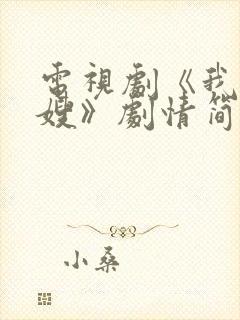 電視劇《我
嫂》劇情简
小桑